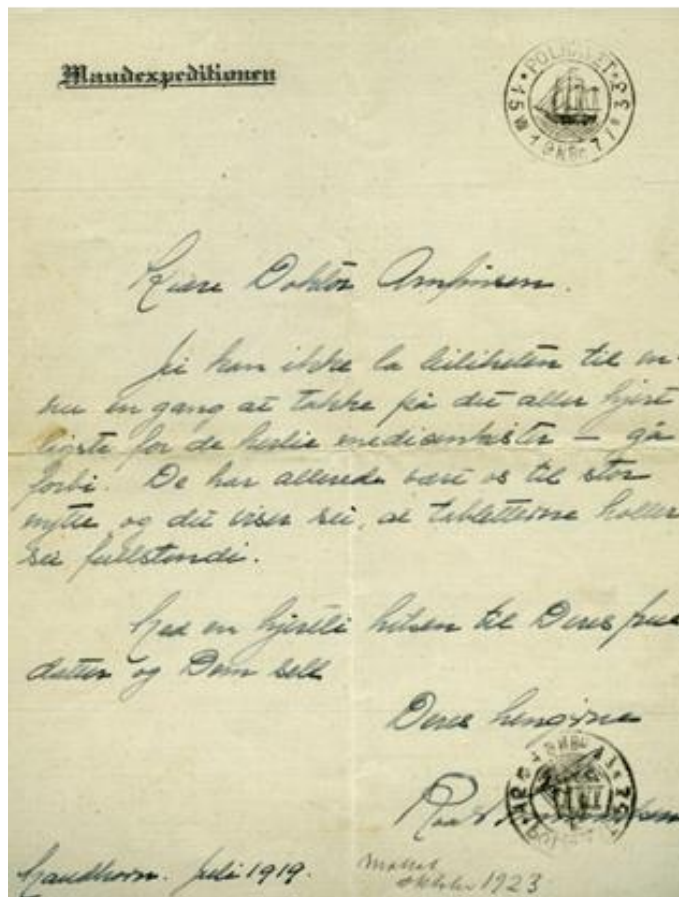 Maudexpeditionen
POLHAVET
Kjære Doktor Arnfinsen.
Jei kan ikke la leiliheten til en-
nu en gang at takke på det aller hjert
ligste for de herlie medisinkister — gå
forbi. De har allerede vært os til stor
nytte og det viser sei, at tablettene holler
sei fullstendi.
Med en hjertli hilsen til Deres frue
datter og Dem sell
Deres hengivne
Roald
Maudhavn. Juli 1919.
oktober 1923